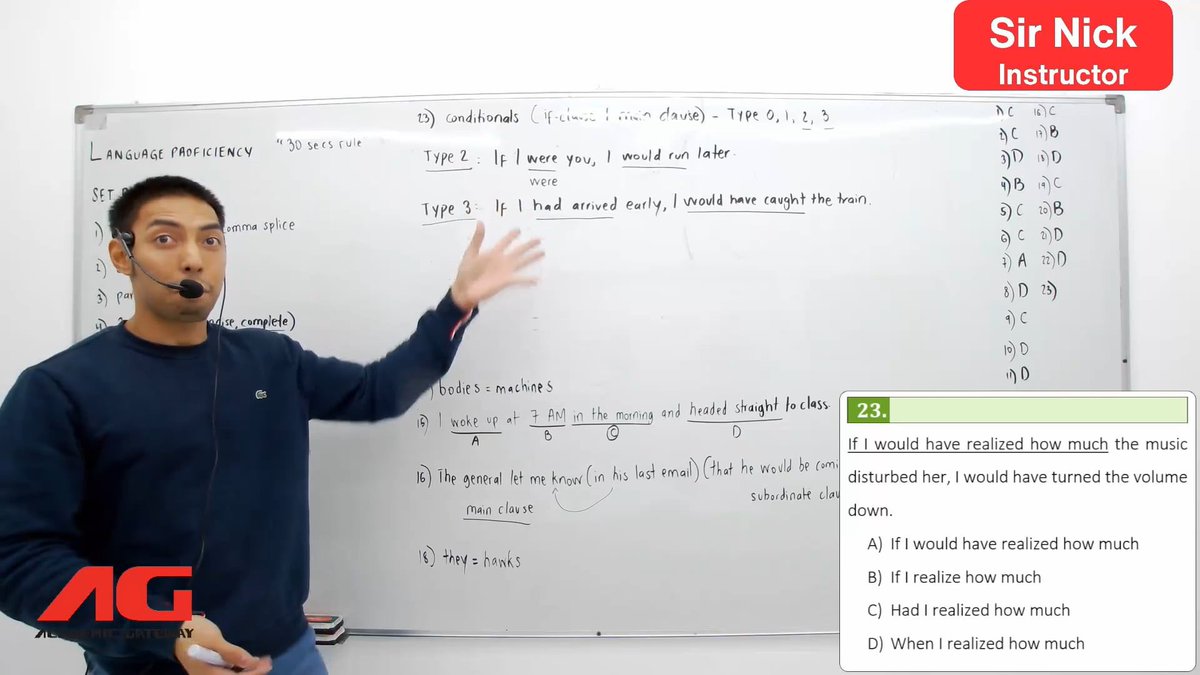 Sir Nick
Instructor
LANGUAGE PROFICIENCY "30 secs rule"
1) comma splice
2)
3) par
4) cise, complete)
23) conditionals (if-clause / main clause) - Type 0, 1, 2, 3
Type 2: If I were you, I would run later.
were
Type 3: If I had arrived early, I would have caught the train.
) bodies = machines
15) I woke up at 7 AM in the morning and headed straight to class
A B C D
16) The general let me know (in his last email) (that he would be comi
main clause
subordinate clau
18) they = hawks
1) C 16) C
2) C 17) B
3) D 18) D
4) B 19) C
5) C 20) B
6) C 21) D
7) A 22) D
8) D 23)
9) C
10) D
11) D
23.
If I would have realized how much the music
disturbed her, I would have turned the volume
down.
A) If I would have realized how much
B) If I realize how much
C) Had I realized how much
D) When I realized how much
AG
ACADEMIC GATEWAY